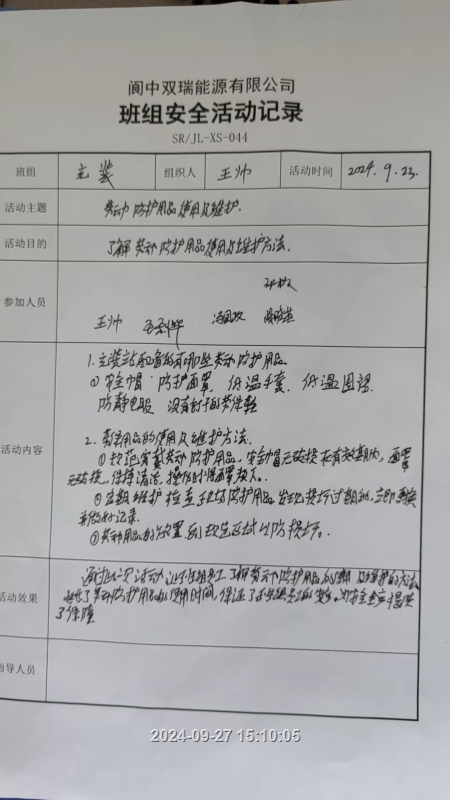 阆中双瑞能源有限公司
班组安全活动记录
SR/JL-XS-044
班组 主装 组织人 王帅 活动时间 2024.9.23.
活动主题 劳动防护用品使用及维护.
活动目的 了解劳动防护用品使用及维护方法.
参加人员
王帅
活动内容
1.主装站配备的有哪些劳动防护用品
①安全帽 防护面罩, 低温手套, 低温围裙
防静电服 没有钉子的劳保鞋
2.劳保用品的使用及维护方法.
①规范穿戴劳动防护用品. 安全帽无破损 在有效期内, 面罩
无破损, 保持清洁, 操作时将面罩放下.
②定期维护 检查 防护用品 发现损坏过期的, 立即更换
并做好记录.
③劳动用品的放置 区域 以防损坏.
活动效果 通过此次活动 让 组员工了解劳动防护用品的 及维护的方法
了劳动防护用品的使用时间, 保证了 员工的安全, 安全生产提供
了保障
指导人员
2024-09-27 15:10:05